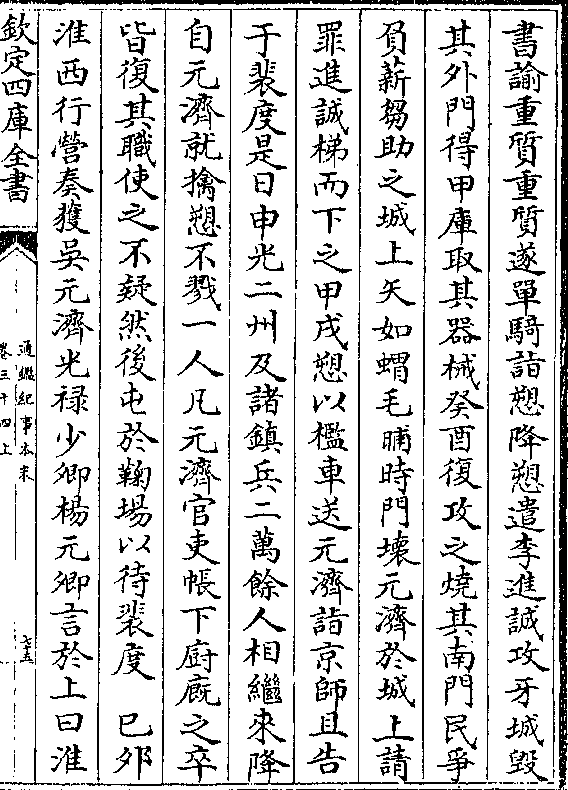 書諭重質重質遂單騎詣愬降愬遣李進誠攻牙城毁
其外門得甲庫取其器械癸酉復攻之燒其南門民爭
負薪芻助之城上矢如蝟毛晡時門壞元濟於城上請
罪進誠梯而下之甲戌愬以檻車送元濟詣京師且告
于裴度是日申光二州及諸鎮兵二萬餘人相繼來降
自元濟就擒愬不戮一人凡元濟官吏帳下廚廐之卒
皆復其職使之不疑然後屯於鞠場以待裴度　巳夘
淮西行營奏獲吳元濟光禄少卿楊元卿言於上曰淮
欽定四庫全書
通鑑紀事本末
卷三十四上
七五